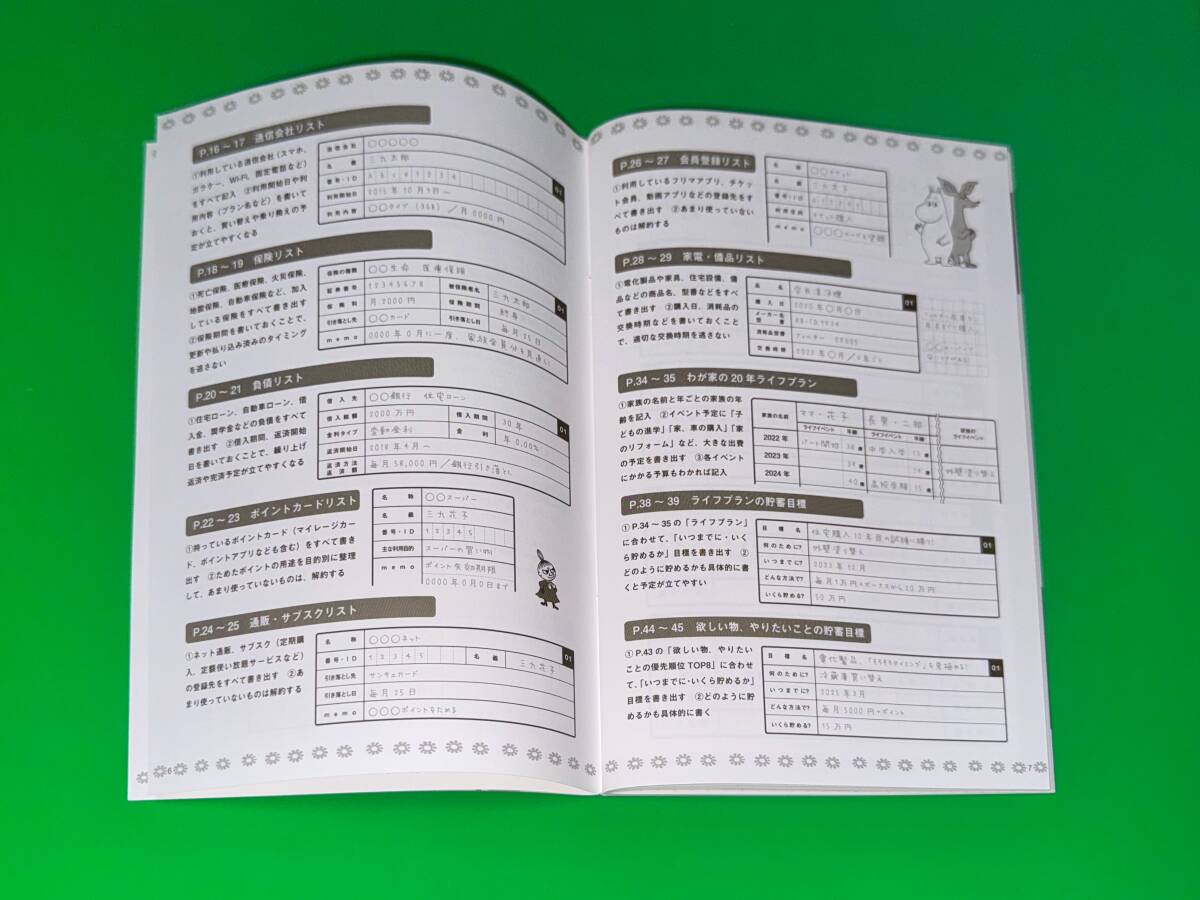 P.16～17 通信会社リスト
①利用している通信会社（スマホ、
ガラケー、Wi-Fi、固定電話など）
をすべて記入 ②利用開始日や利
用内容（プラン名など）を書いて
おくと、買い替えや乗り換えの予
定が立てやすくなる
通信会社 ○○○○○
名義 三九太郎
番号・ID
01
利用開始日 2015年10月9日～
利用内容 ○○タイプ（3GB）／月0000円
P.18～19 保険リスト
①死亡保険、医療保険、火災保険、
地震保険、自動車保険など、加入
している保険をすべて書き出す
②保険期間を書いておくことで、
更新や払い込み済みのタイミング
を逃さない
保険の種類 ○○生命 医療保険
証券番号 12345678 被保険者名 三九太郎
01
保険料 月2000円 保険期間 終身
引き落とし先 ○○カード 引き落とし日 毎月25日
memo 0000年0月に一度、家族全員分を見直し
P.20～21 負債リスト
①住宅ローン、自動車ローン、借
入金、奨学金などの負債をすべて
書き出す ②借入期間、返済開始
日を書いておくことで、繰り上げ
返済や完済予定が立てやすくなる
借入先 ○○銀行 住宅ローン
借入総額 2000万円 借入期間 30年
01
金利タイプ 変動金利 金利 年0.00%
返済開始日 2018年4月～
返済方法 返済額 毎月58,000／銀行引き落とし
P.22～23 ポイントカードリスト
①持っているポイントカード（マイレージカー
ド、ポイントアプリなども含む）をすべて書き
出す ②ためたポイントの用途を目的別に整理
して、あまり使っていないものは、解約する
名称 ○○スーパー
名義 三九花子
番号・ID 12345
主な利用目的 スーパーの買い物
memo ポイント失効期限
0000年0月0日まで
P.24～25 通販・サブスクリスト
①ネット通販、サブスク（定期購
入、定額使い放題サービスなど）
の登録先をすべて書き出す ②あ
まり使っていないものは解約する
名称 ○○○ネット
01
番号・ID 12345 名義 三九花子
引き落とし先 サンキュカード
引き落とし日 毎月25日
memo ○○○ポイントをためる
6
P.26～27 会員登録リスト
①利用しているフリマアプリ、チケッ
ト会員、動画アプリなどの登録先をす
べて書き出す ②あまり使っていない
ものは解約する
名称 ○○チケット
名義 三九花子
番号・ID
利用目的 チケット購入
memo
P.28～29 家電・備品リスト
①電化製品や家具、住宅設備、備
品などの商品名、型番などをすべ
て書き出す ②購入日、消耗品の
交換時期などを書いておくこと
で、適切な交換時期を逃さない
品名 空気清浄機
01
購入日 2020年○月○日
メーカー名 型番
消耗品型番
交換時期
P.34～35 わが家の20年ライフプラン
①家族の名前と年ごとの家族の年
齢を記入 ②イベント予定に「子
どもの進学」「家、車の購入」「家
のリフォーム」など、大きな出費
の予定を書き出す ③各イベント
にかかる予算もわかれば記入
家族の名前 ママ・花子 長男・二郎 家族の ライフイベント
ライフイベント 年齢 ライフイベント 年齢
2022年 パート開始 38歳 中学入学 13歳
2023年 39歳 14歳 外壁塗り替え
2024年 40歳 高校受験 15歳
P.38～39 ライフプランの貯蓄目標
①P.34～35の「ライフプラン」
に合わせて、「いつまでに・いく
ら貯めるか」目標を書き出す ②
どのように貯めるかも具体的に書
くと予定が立てやすい
目標名 住宅購入10年目の試練に勝つ!
01
何のために? 外壁塗り替え
いつまでに? 2023年12月
どんな方法で? 毎月1万円+ボーナスから20万円
いくら貯める? 50万円
P.44～45 欲しい物、やりたいことの貯蓄目標
①P.43の「欲しい物、やりたい
ことの優先順位TOP8」に合わせ
て、「いつまでに・いくら貯めるか」
目標を書き出す ②どのように貯
めるかも具体的に書く
目標名 電化製品、「そろそろタイミング」を見極める!
01
何のために? 冷蔵庫買い替え
いつまでに? 2025年3月
どんな方法で? 毎月5000円+ポイント
いくら貯める? 15万円
7